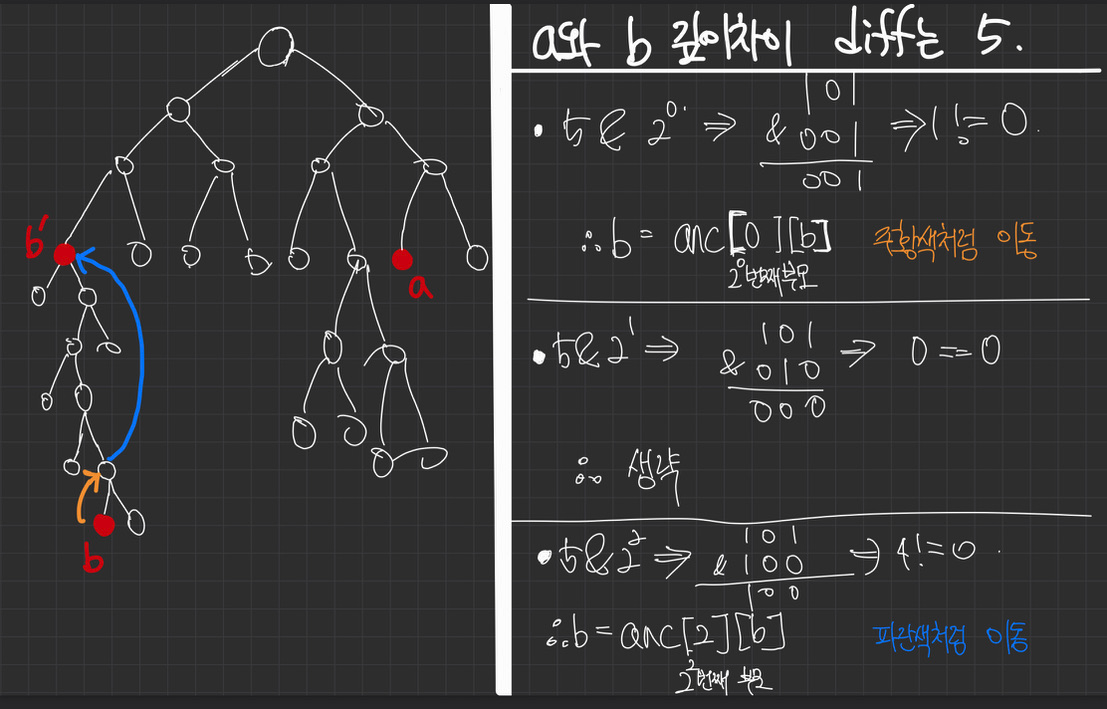 a와 b 깊이차이 diff는 5.
• 5 & 2⁰ ⇒ 101 & 001 001 ⇒ 1 != 0.
∴ b = anc[0][b] 주황색처럼 이동
2⁰번째부모
• 5 & 2¹ ⇒ 101 & 010 000 ⇒ 0 == 0
∴ 생략
• 5 & 2² ⇒ 101 & 100 100 ⇒ 4 != 0.
∴ b = anc[2][b] 파란색처럼 이동
2²번째 부모
b'
a
b